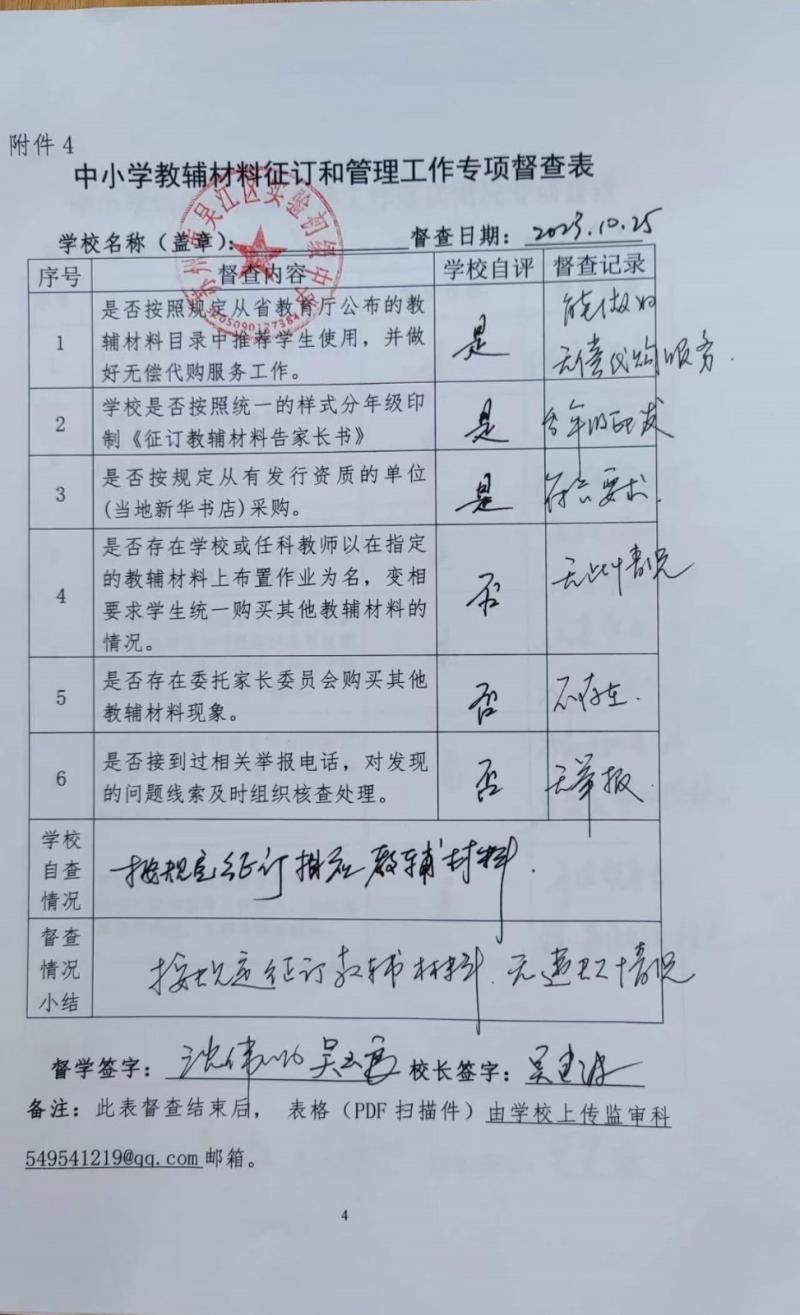 附件 4
中小学教辅材料征订和管理工作专项督查表
苏州市吴江区实验初级中学
学校名称（盖章）： 督查日期：2023.10.25
序号 督查内容 学校自评 督查记录
1 是否按照规定从省教育厅公布的教 是 能做好
辅材料目录中推荐学生使用，并做 无偿代购服务.
好无偿代购服务工作。
2 学校是否按照统一的样式分年级印 是 年的印发
制《征订教辅材料告家长书》
3 是否按规定从有发行资质的单位 是 符合要求.
(当地新华书店)采购。
4 是否存在学校或任科教师以在指定 否 无此情况
的教辅材料上布置作业为名，变相
要求学生统一购买其他教辅材料的
情况。
5 是否存在委托家长委员会购买其他 否 不存在.
教辅材料现象。
6 是否接到过相关举报电话，对发现 否 无举报.
的问题线索及时组织核查处理。
学校
自查
情况
按规定征订推荐教辅材料.
督查
情况
小结
按规定征订教辅材料.无违规情况
督学签字： 沈伟 吴 校长签字：吴建
备注：此表督查结束后， 表格（PDF 扫描件）由学校上传监审科
549541219@qq.com 邮箱。
4